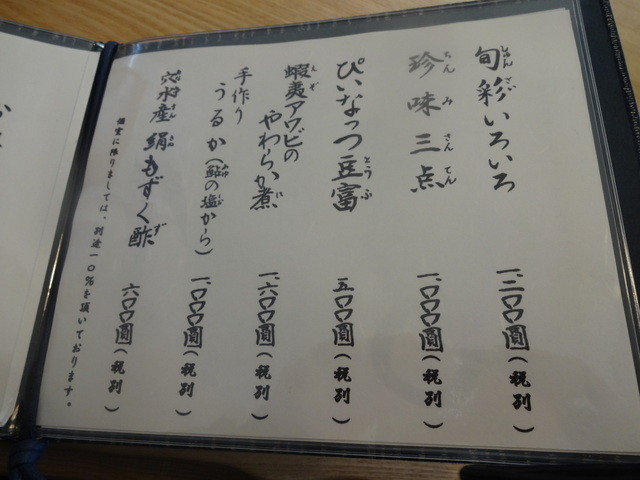 旬彩いろいろ
一、二〇〇圓(税別)
珍味三点
一、〇〇〇圓(税別)
ぴいなっつ豆富
五〇〇圓(税別)
蝦夷アワビの
やわらか煮
一、六〇〇圓(税別)
手作り
うるか(鮎の塩から)
一、〇〇〇圓(税別)
穴水産 絹もずく酢
六〇〇圓(税別)
個室に限りましては、別途一〇%を頂いております。